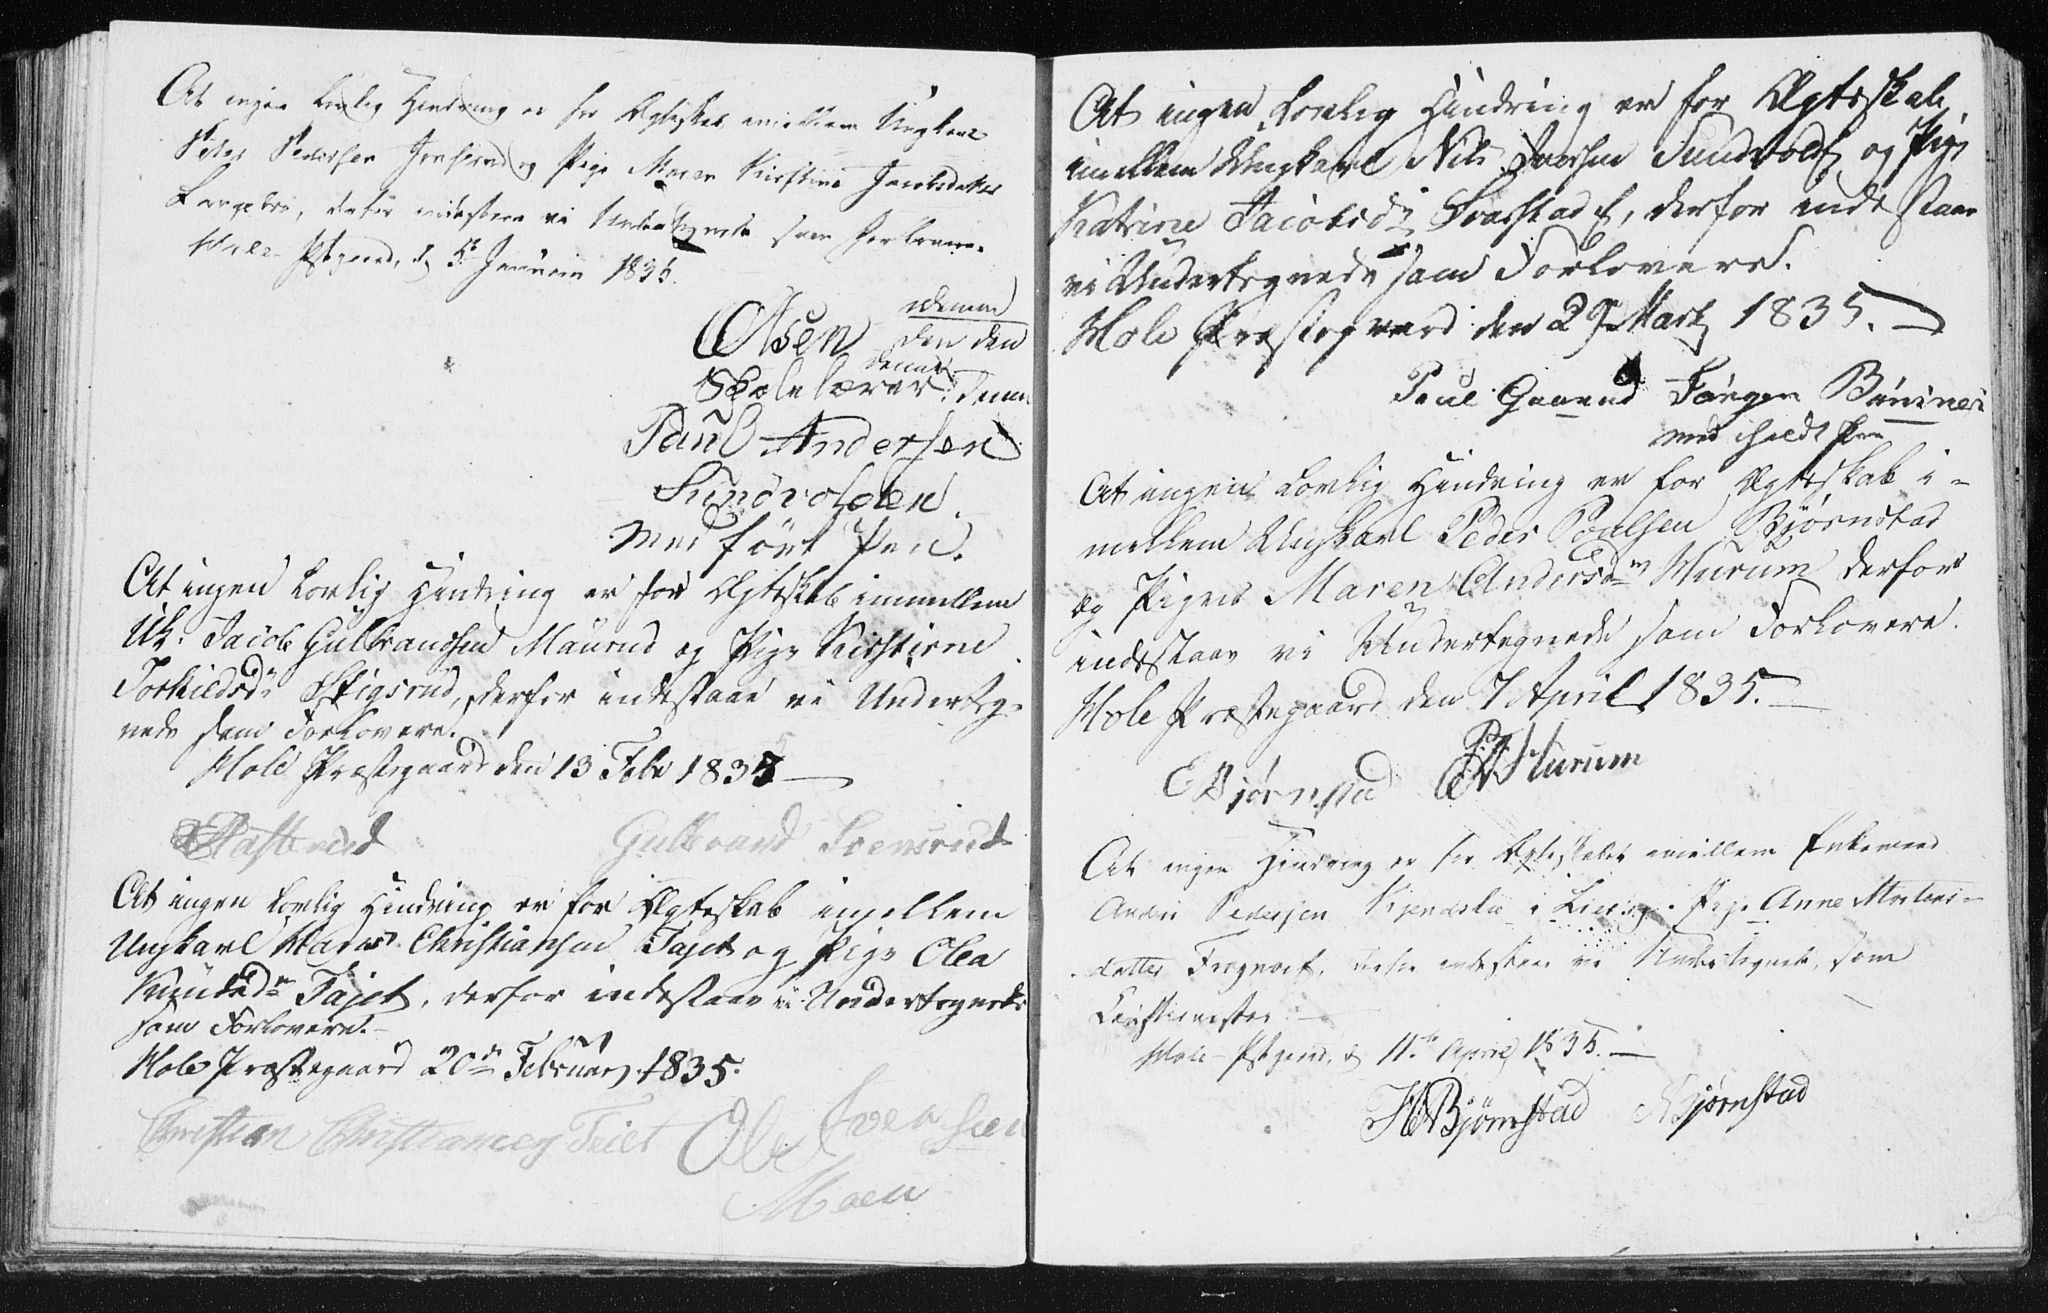 At ingen Lovlig Hindring er for Ægteskab imellem Ungkarl
Peder Pedersen Jonsrud og Pige Maren Kirstine Jacobsdatter
derfor indestaae vi Undertegnede som Forlovere.
Hole Pstgaard, d 5te Januari 1835.
Olsen
Skolelærer.
Paul Andersen
Sundvolden.
Med ført Pen.
At ingen Lovlig Hindring er for Ægteskab immellem
Uk: Jacob Gulbrandsen Maurud og Pige Kirstine
Torkildsdr Stigsrud, derfor indestaae vi Underteg-
nede som Forlovere.
Hole Præstegaard den 13 Febr 1835
Gulbrand
At ingen Lovlig Hindring er for Ægteskab imellem
Ungkarl Hans Christiansen Fajet og Pige Olea
Knudsdr Fajet, derfor indestaae vi Undertegnede
som Forlovere.
Hole Præstegaard 20de Februar 1835.
Christian Christiansen Feiet Ole Iversen
Moen
At ingen Lovlig Hindring er for Ægteskab
imellem Ungkarl Nils Iversen Sundvold og Pige
Katrine Jacobsdr Svarstad, derfor indestaae
vi Undertegnede som Forlovere.
Hole Præstegaard den 29 Marts 1835.
Poul Gaarud Jørgen
med holdt Pen
At ingen Lovlig Hindring er for Ægteskab i-
mellem Ungkarl Peder Poulsen Bjørnstad
og Pigen Maren Andersdr Murum derfor
indestaae vi Undertegnede som Forlovere.
Hole Præstegaard den 7 April 1835.
E Bjørnstad Murum
At ingen Hindring er for Ægteskabet imellem Enkemand
Anders Pedersen i Lier og Pige Anne Mortens-
datter Frognøe, derfor indestaae vi Undertegnede, som
Hole Pstgaard, d 11te April 1835.
HBjørnstad Bjørnstad